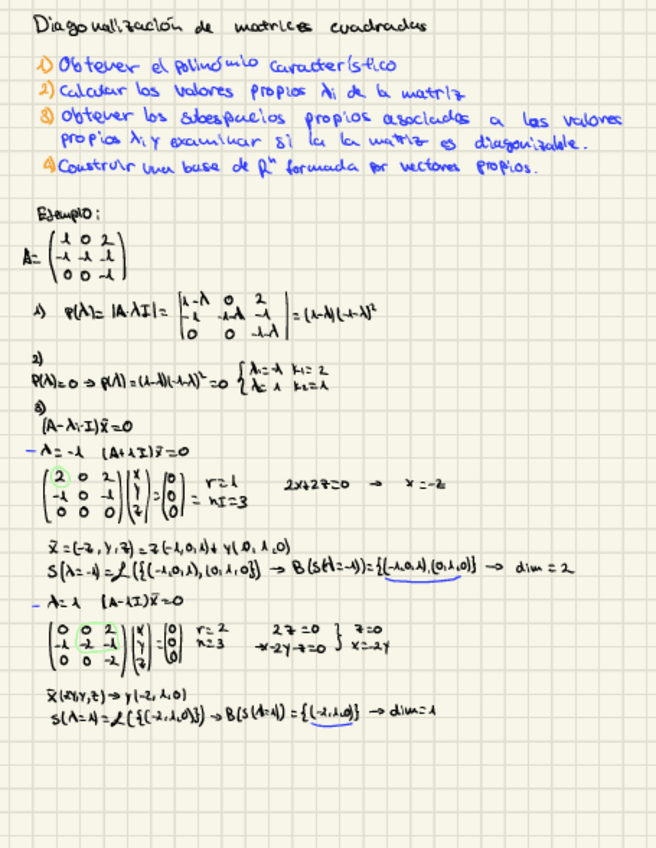 Diagonalización de matrices cuadradas
1) Obtener el polinómio característico
2) Calcular los valores propios λi de la matriz
3) Obtener los sbespacios propios asociados a los valores
propios λi y examinar si la la matriz es diagonizable.
4) Construir una base de Rⁿ formada por vectores propios.
Ejemplo:
A= (1 0 2
-1 -1 -1
0 0 -1)
1) P(λ)= |A-λI|= |1-λ 0 2
-1 -1-λ -1
0 0 -1-λ| = (1-λ)(-1-λ)²
2)
P(λ)=0 → p(λ)=(1-λ)(-1-λ)²=0 { λ1=-1 k1=2
λ=1 k2=1
3)
(A-λi·I)x̄=0
- λ=-1 (A+1I)x̄=0
(2 0 2
-1 0 -1
0 0 0) (x y z) = (0 0 0) r=1 = nI=3 2x+2z=0 → x=-z
x̄=(-z,y,z)=z(-1,0,1)+y(0,1,0)
S(λ=-1)=L({(-1,0,1),(0,1,0)}) → B(S(λ=-1))={(-1,0,1),(0,1,0)} → dim=2
- λ=1 (A-1I)x̄=0
(0 0 2
-1 -2 -1
0 0 -2) (x y z) = (0 0 0) r=2 n=3 2z=0 -x-2y-z=0 } z=0 x=-2y
x̄(2y,y,z) → y(-2,1,0)
S(λ=1)=L({(-2,1,0)}) → B(S(λ=1))={(-2,1,0)} → dim=1